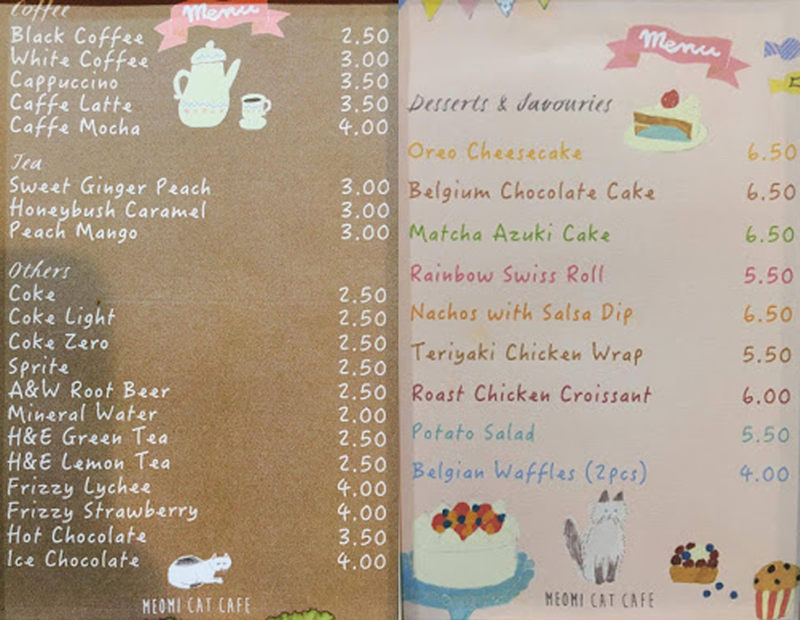 Coffee
Menu
Black Coffee 2.50
White Coffee 3.00
Cappuccino 3.50
Caffe Latte 3.50
Caffe Mocha 4.00
Tea
Sweet Ginger Peach 3.00
Honeybush Caramel 3.00
Peach Mango 3.00
Others
Coke 2.50
Coke Light 2.50
Coke Zero 2.50
Sprite 2.50
A&W Root Beer 2.50
Mineral Water 2.00
H&E Green Tea 2.50
H&E Lemon Tea 2.50
Frizzy Lychee 4.00
Frizzy Strawberry 4.00
Hot Chocolate 3.50
Ice Chocolate 4.00
MEOMI CAT CAFE
Menu
Desserts & Savouries
Oreo Cheesecake 6.50
Belgium Chocolate Cake 6.50
Matcha Azuki Cake 6.50
Rainbow Swiss Roll 5.50
Nachos with Salsa Dip 6.50
Teriyaki Chicken Wrap 5.50
Roast Chicken Croissant 6.00
Potato Salad 5.50
Belgian Waffles (2pcs) 4.00
MEOMI CAT CAFE